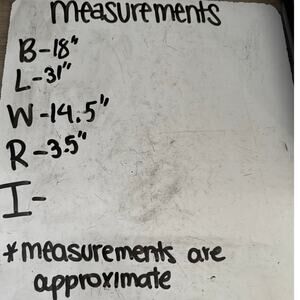 measurements
B-18"
L-31"
W-14.5"
R-3.5"
I-
*measurements are
approximate